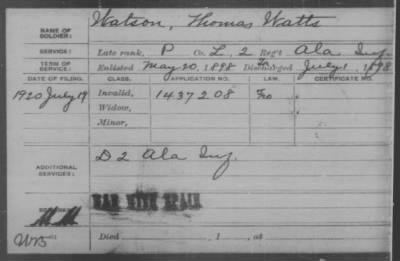 NAME OF SOLDIER: Watson, Thomas Watts
SERVICE: Late rank, P Co. L 2 Reg't Ala Inf.
TERM OF SERVICE: Enlisted May 20, 1898 Discharged July 1, 1898
DATE OF FILING. CLASS. APPLICATION NO. LAW. CERTIFICATE NO.
1920 July 19 Invalid, 1437208
Widow,
Minor,
ADDITIONAL SERVICES: D 2 Ala Inf.
WAR WITH SPAIN
Died , 1 , at